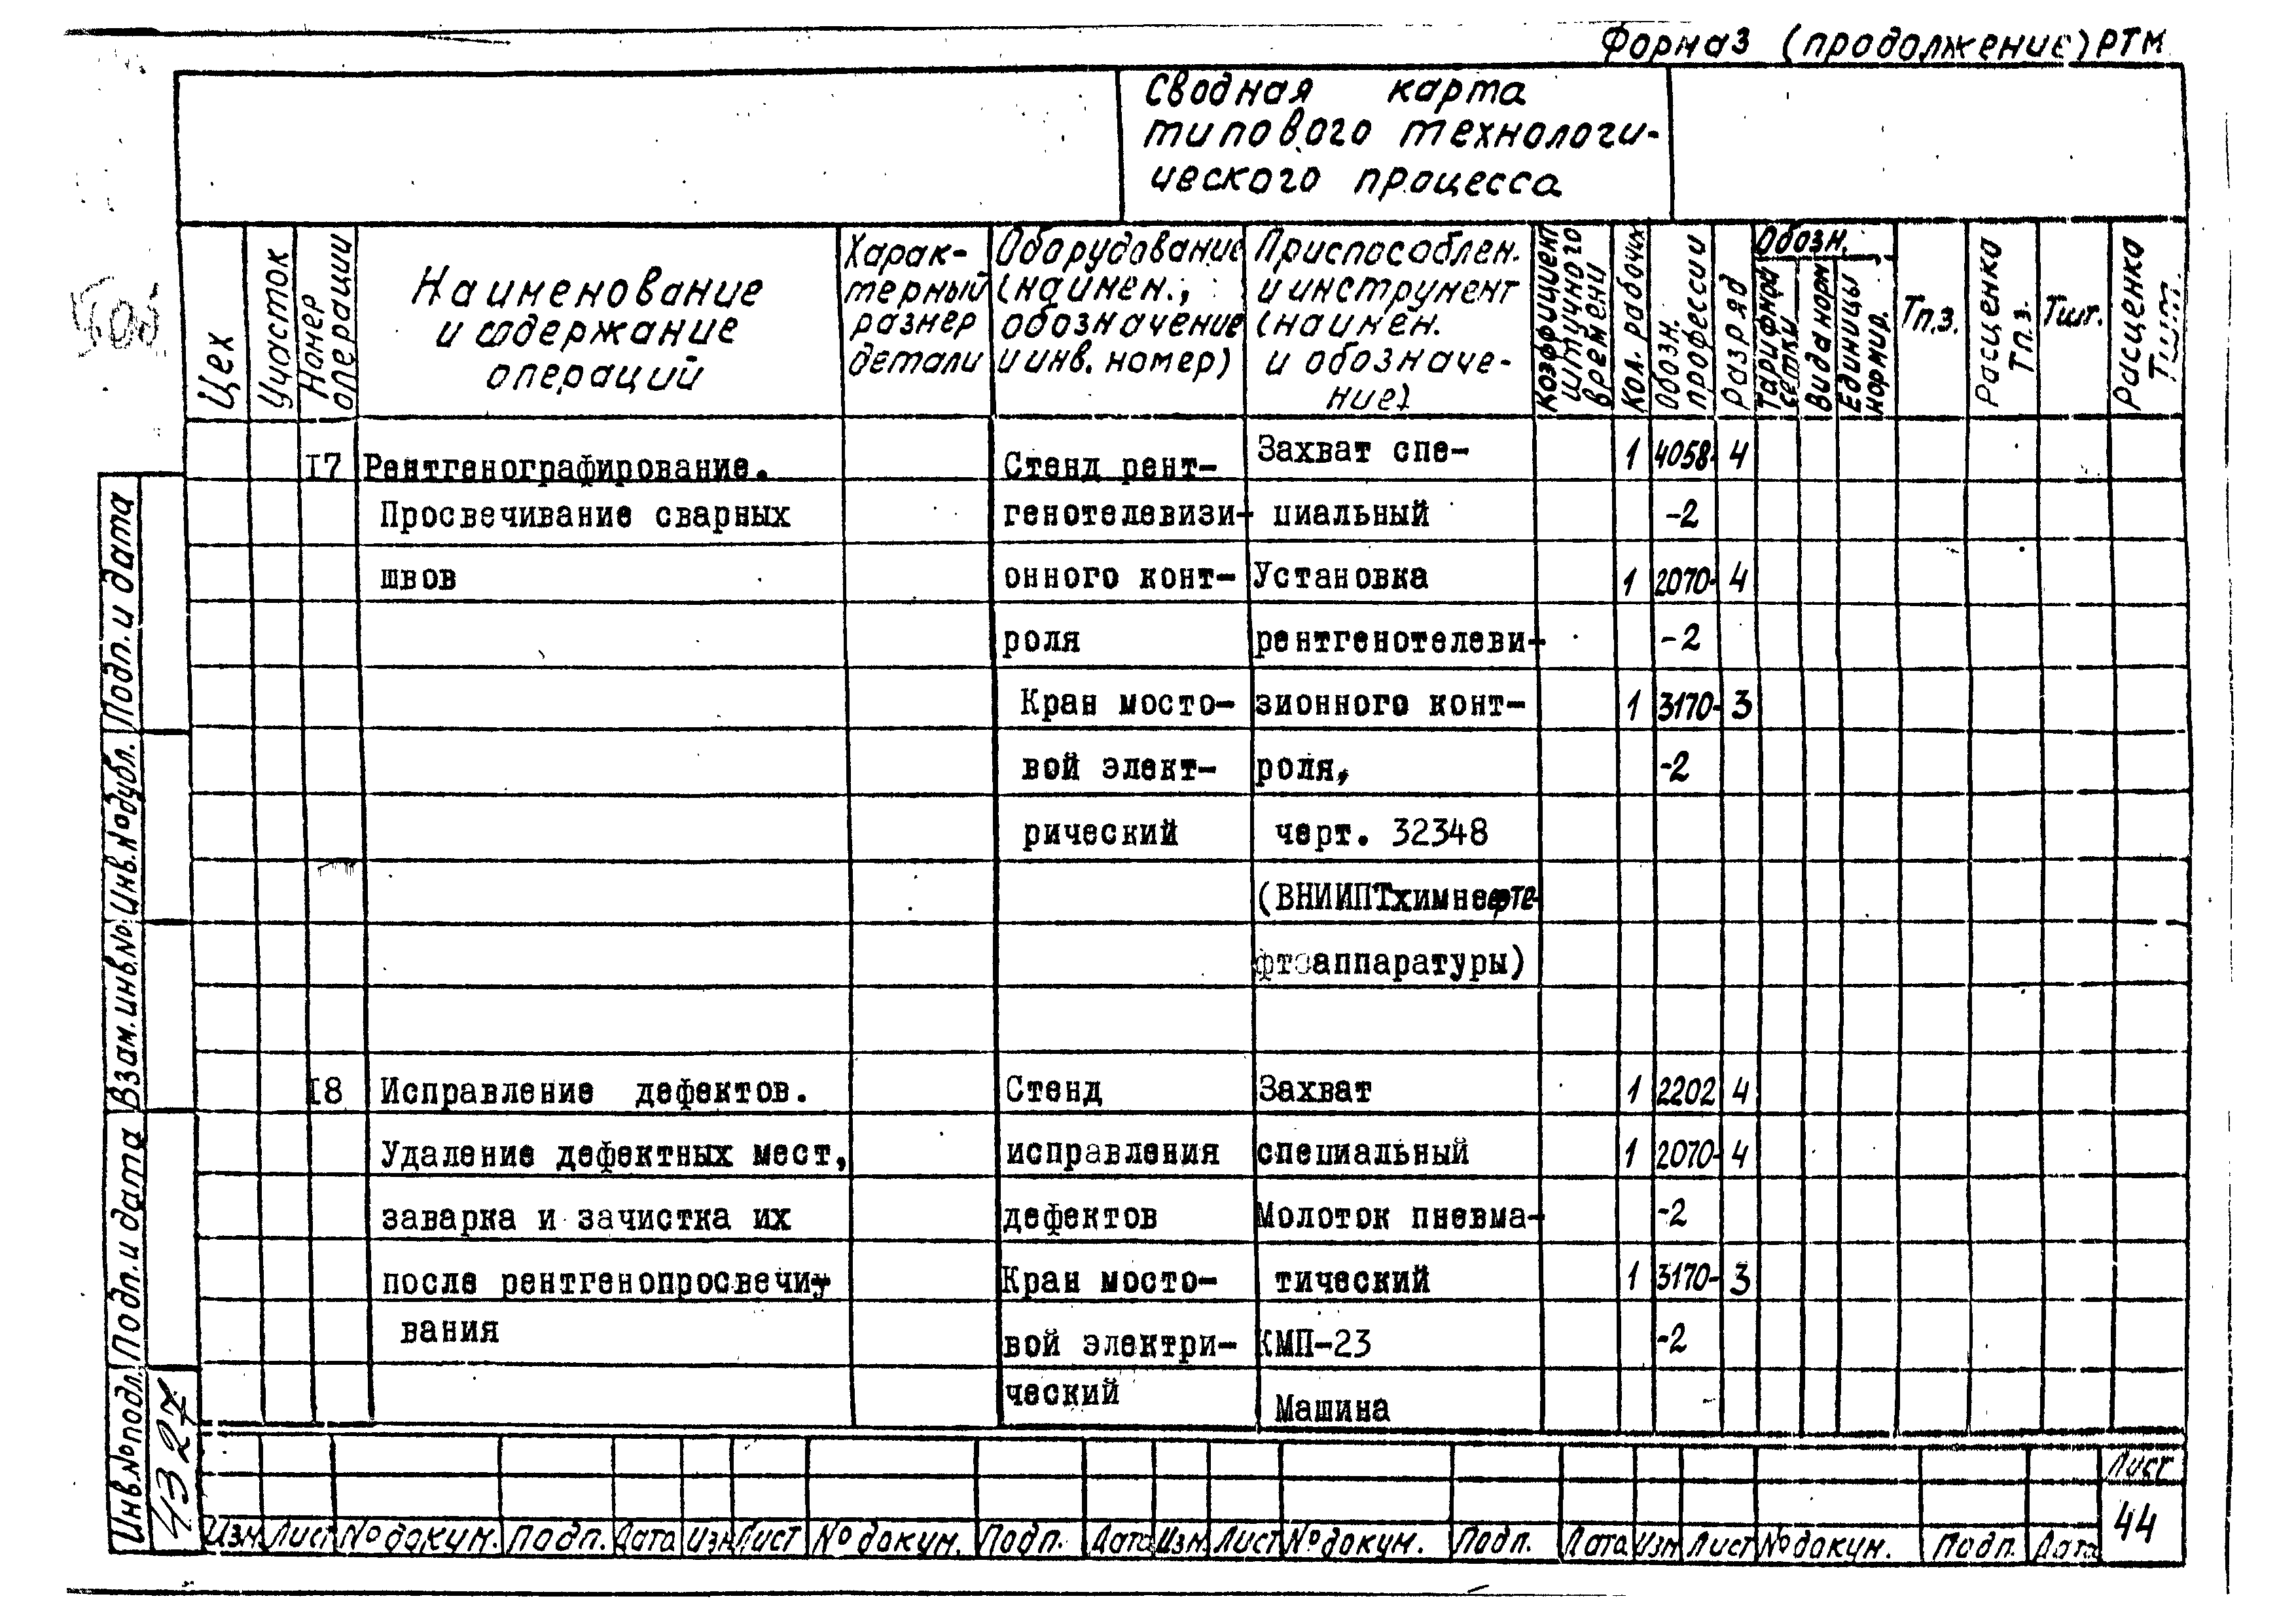 Форма3 (продолжение) РТМ
Сводная карта
типового технологи-
ческого процесса
Цех
Участок
Номер
операции
Наименование
и содержание
операций
Харак-
терный
размер
детали
Оборудование
(наимен.,
обозначение
и инв. номер)
Приспособлен.
и инструмент
(наимен.
и обозначе-
ние)
Коэффициент
штучного
времени
Кол. рабочих
Обозн.
профессии
Разряд
Обозн.
Тарифной
сетки
Вида норм
Единицы
нормир.
Тп.з.
Расценка
Тп.з.
Тшт.
Расценка
Тшт.
17 Рентгенографирование. Стенд рент- Захват спе- 1 4058- 4
Просвечивание сварных генотелевизи- циальный -2
швов онного конт- Установка 1 2070- 4
роля рентгенотелеви- -2
Кран мосто- зионного конт- 1 3170- 3
вой элект- роля, -2
рический черт. 32348
(ВНИИПТхимнефте-
фтеаппаратуры)
18 Исправление дефектов. Стенд Захват 1 2202 4
Удаление дефектных мест, исправления специальный 1 2070- 4
заварка и зачистка их дефектов Молоток пневма- -2
после рентгенопросвечи- Кран мосто- тический 1 3170- 3
вания вой электри- КМП-23 -2
ческий Машина
Подп. и дата
Инв.№дубл.
Взам.инв.№
Подп. и дата
Инв.№подл.
4327
Изм Лист № докум. подп. Дата Изм Лист № докум. Подп. Дата Изм. Лист № докум. Подп. Дата Изм Лист № докум. Подп. Дата
Лист
44